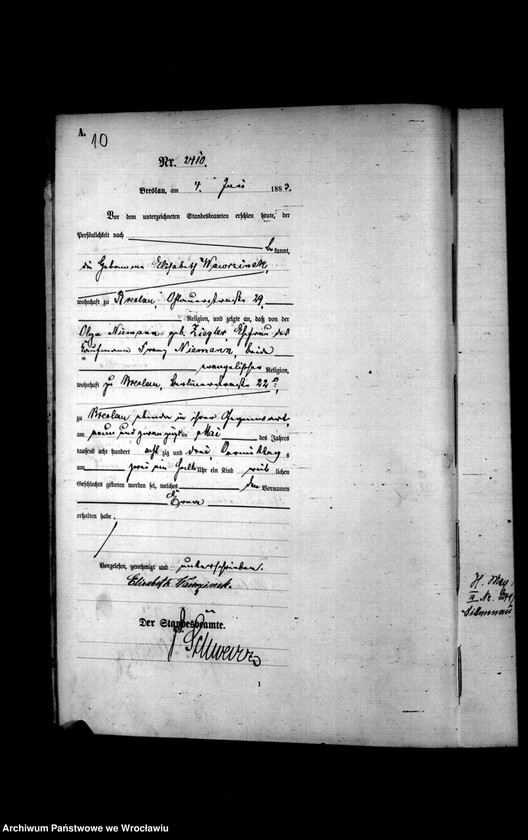 A.
10
Nr. 2410.
Breslau, am 4. Juni 1883.
Vor dem unterzeichneten Standesbeamten erschien heute, der
Persönlichkeit nach
be kannt,
die Hebamme Elisabeth Wawrzinek,
wohnhaft zu Breslau, Ohlauerstraße 29,
Religion, und zeigte an, daß von der
Olga Niemann geb. Ziegler, Ehefrau des
Kaufmanns Franz Niemann, beide
evangelischer Religion,
wohnhaft zu Breslau, Berlinerstraße 22
zu Breslau, ebenda in ihrer Gegenwart,
am neun und zwanzigsten Mai des Jahres
tausend acht hundert acht zig und drei, Vormittag s
um zwei ein halb Uhr ein Kind weib lichen
Geschlechts geboren worden sei, welches den Vornamen
erhalten habe.
Vorgelesen, genehmigt und unterschrieben.
Elisabeth Wawrzinek.
Der Standesbeamte.
Schwarz
1
H. 
II Nr.
Archiwum Państwowe we Wrocławiu